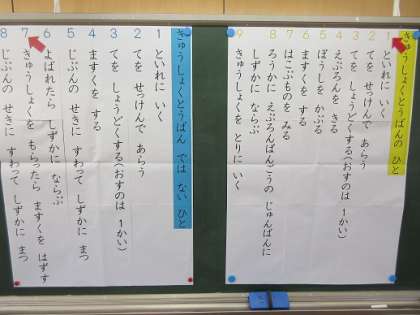 きゅうしょくとうばんの ひと
1 といれに いく
2 てを せっけんで あらう
3 てを しょうどくする(おすのは 1かい)
4 えぷろんを きる
5 ぼうしを かぶる
6 ますくを する
7 はこぶものを みる
8 ろうかに えぷろんばんごうの じゅんばんに
しずかに ならぶ
9 きゅうしょくを とりに いく
きゅうしょくとうばん では ない ひと
1 といれに いく
2 てを せっけんで あらう
3 てを しょうどくする(おすのは 1かい)
4 ますくを する
5 じぶんの せきに すわって しずかに まつ
6 よばれたら しずかに ならぶ
7 きゅうしょくを もらったら ますくを はずす
8 じぶんの せきに すわって しずかに まつ